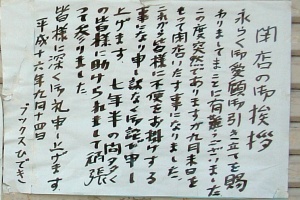 閉店の御挨拶
永らく御愛顧御引き立てを賜
わりましてまことに有難うございました
この度突然でありますが九月末日を
もって閉店いたす事になりました。
これから皆様に不便をお掛けする
事になり申し訳なく御詫び申し
上げます。七年半の間多く
の皆様に助けられまして頑張
って参りました
皆様に深く御礼申し上げます。
平成十六年九月十四日
ブックスひでき